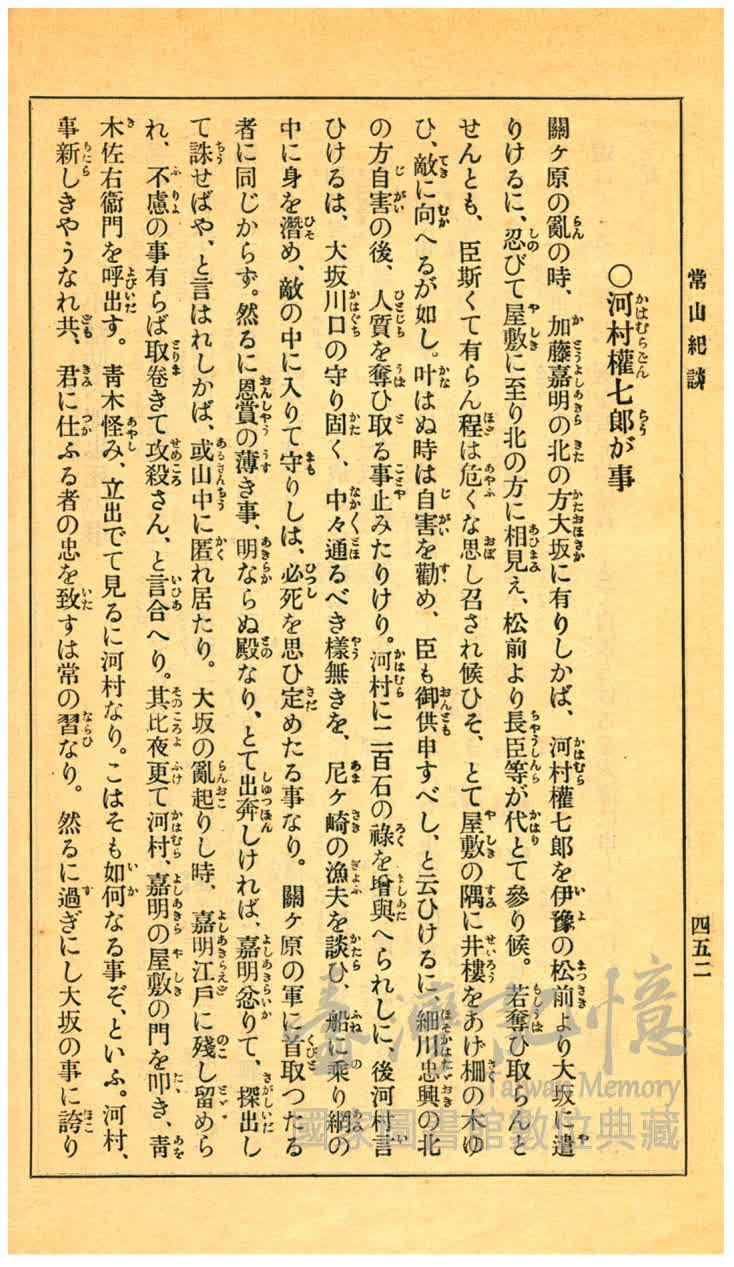 常山紀談
四五二
○河村權七郎が事
關ヶ原の亂の時、加藤嘉明の北の方大坂に有りしかば、河村權七郎を伊豫の松前より大坂に遣
りけるに、忍びて屋敷に至り北の方に相見え、松前より長臣等が代とて參り候。若奪ひ取らんと
せんとも、臣斯くて有らん程は危くな思し召され候ひそ、とて屋敷の隅に井樓をあけ柵の木ゆ
ひ、敵に向へるが如し。叶はぬ時は自害を勸め、臣も御供申すべし、と云ひけるに、細川忠興の北
の方自害の後、人質を奪ひ取る事止みたりけり。河村に二百石の祿を增與へられしに、後河村言
ひけるは、大坂川口の守り固く、中々通るべき樣無きを、尼ヶ崎の漁夫を談ひ、船に乘り網の
中に身を潛め、敵の中に入りて守りしは、必死を思ひ定めたる事なり。關ヶ原の軍に首取つたる
者に同じからず。然るに恩賞の薄き事、明ならぬ殿なり、とて出奔しければ、嘉明忿りて、探出し
て誅せばや、と言はれしかば、或山中に匿れ居たり。大坂の亂起りし時、嘉明江戶に殘し留めら
れ、不慮の事有らば取卷きて攻殺さん、と言合へり。其比夜更て河村、嘉明の屋敷の門を叩き、靑
木佐右衞門を呼出す。靑木怪み、立出でて見るに河村なり。こはそも如何なる事ぞ、といふ。河村、
事新しきやうなれ共、君に仕ふる者の忠を致すは常の習なり。然るに過ぎにし大坂の事に誇り
臺灣記憶
Taiwan Memory
國家圖書館數位典藏